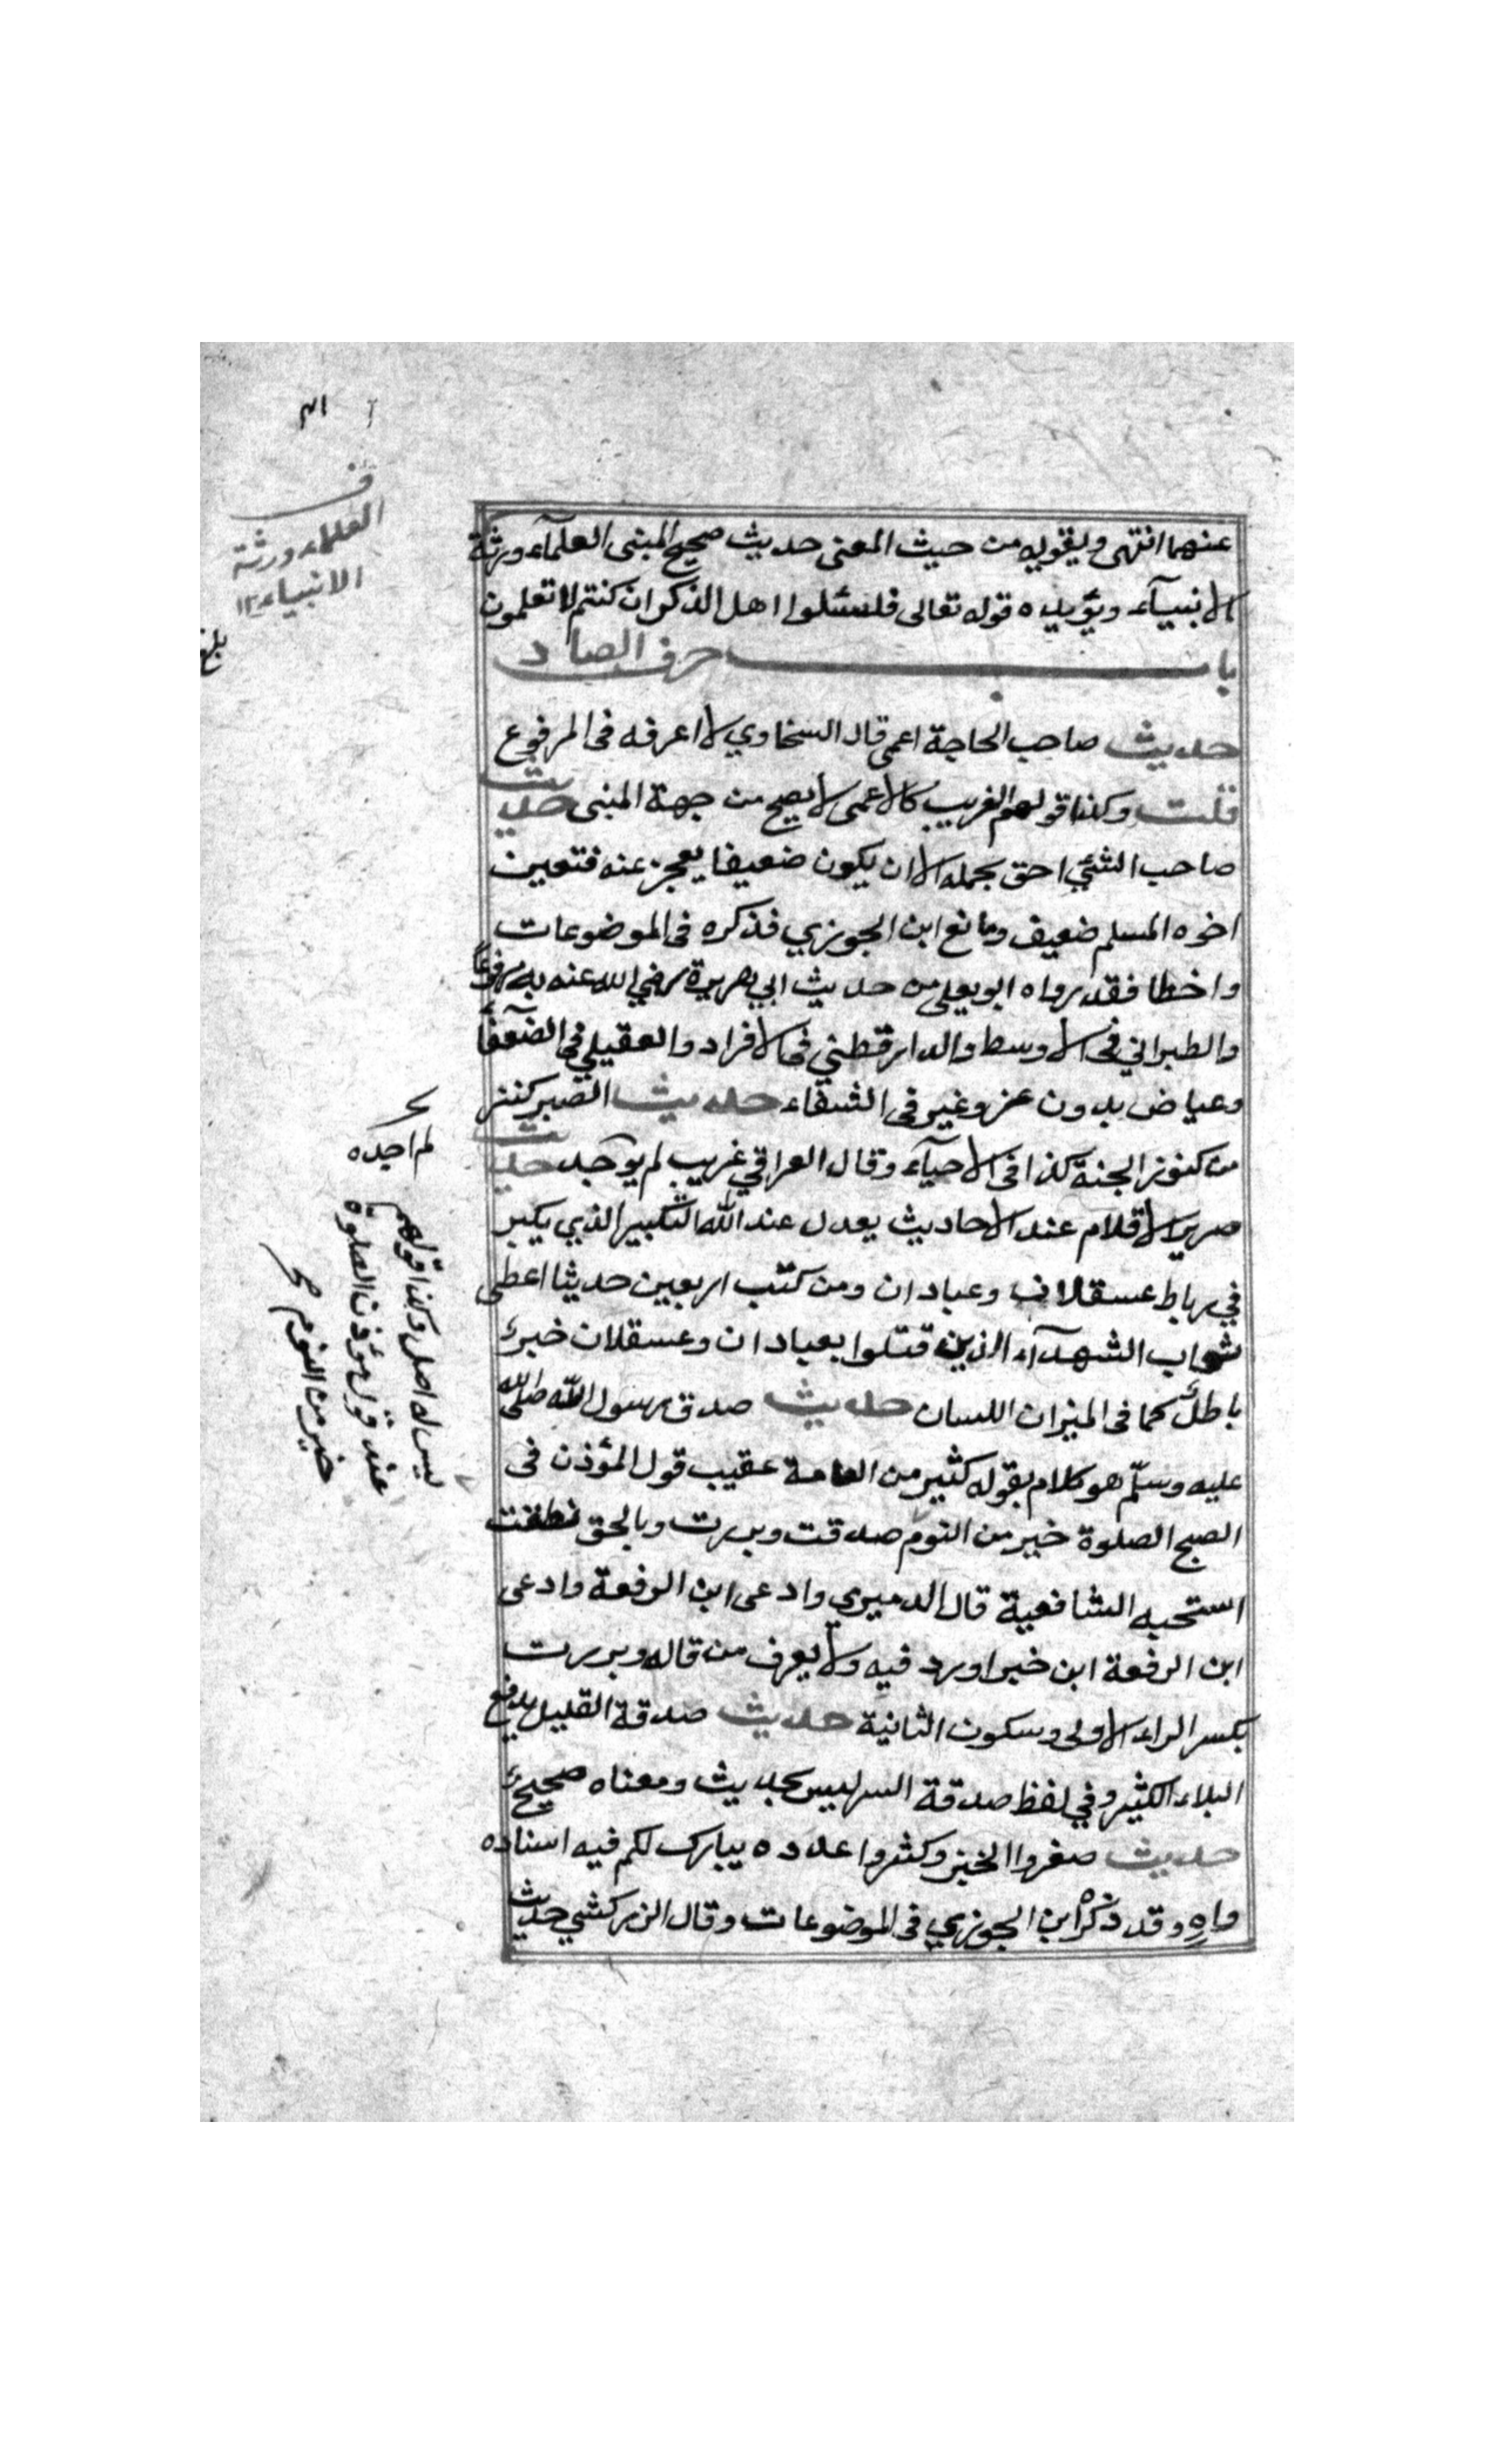 عنهما انتهى ويقويه من حيث المعنى حديث صحيح المبنى العلمآء ورثة
الانبيآء ويؤيده قوله تعالى فلسئلوا اهل الذكر ان كنتم لا تعلمون
باب حرف الصاد
حديث صاحب الحاجة اعمى قال السخاوي لا اعرفه فى المرفوع
قلت وكذا قولهم الغريب كالاعمى لا يصح من جهة المبنى حديث
صاحب الشئي احق بحمله الا ان يكون ضعيفا يعجز عنه فتعين
اخوه المسلم ضعيف وما نع ابن الجوزي فذكره فى الموضوعات
واخطا فقد رواه ابو يعلى من حديث ابي هريرة رضي الله عنه به مرفوعاً
والطبراني فى الاوسط والدارقطني فى الافراد والعقيلي فى الضعفا
وعياض بدون عزو غير فى الشفاء حديث الصبر كنز
من كنوز الجنة كذا فى الاحيآء وقال العراقي غريب لم يوجد حديث
صرير الاقلام عند الاحاديث يعدل عند الله التكبير الذي يكبر
في رباط عسقلان وعبادان ومن كتب اربعين حديثا اعطى
ثواب الشهدآء الذين قتلوا بعبادان وعسقلان خبر
باطل كما فى الميزان اللسان حديث صدق رسول الله صلى الله
عليه وسلّم هو كلام يقوله كثير من العامة عقيب قول المؤذن فى
الصبح الصلوة خير من النوم صدقت وبررت وبالحق نطقت
استحبه الشافعية قال الدميري وادعى ابن الرفعة وادعى
ابن الرفعة ابن خبرا ورد فيه ولا يعرف من قاله وبررت
بكسر الراء الاولى وسكون الثانية حديث صدقة القليل يدفع
البلاء الكثير وفي لفظ صدقة السهليس بحديث ومعناه صحيح
حديث صغروا الخبز وكثروا عدده يبارك لكم فيه اسناده
واهٍ وقد ذكره ابن الجوزي فى الموضوعات وقال الزركشي حديث
قف
العلماء ورثة
الانبياء ١٢
بلغ
لم اجده
ليس له اصل وكذا قولهم
عند قول مؤذن الصلوة
خير من النوم